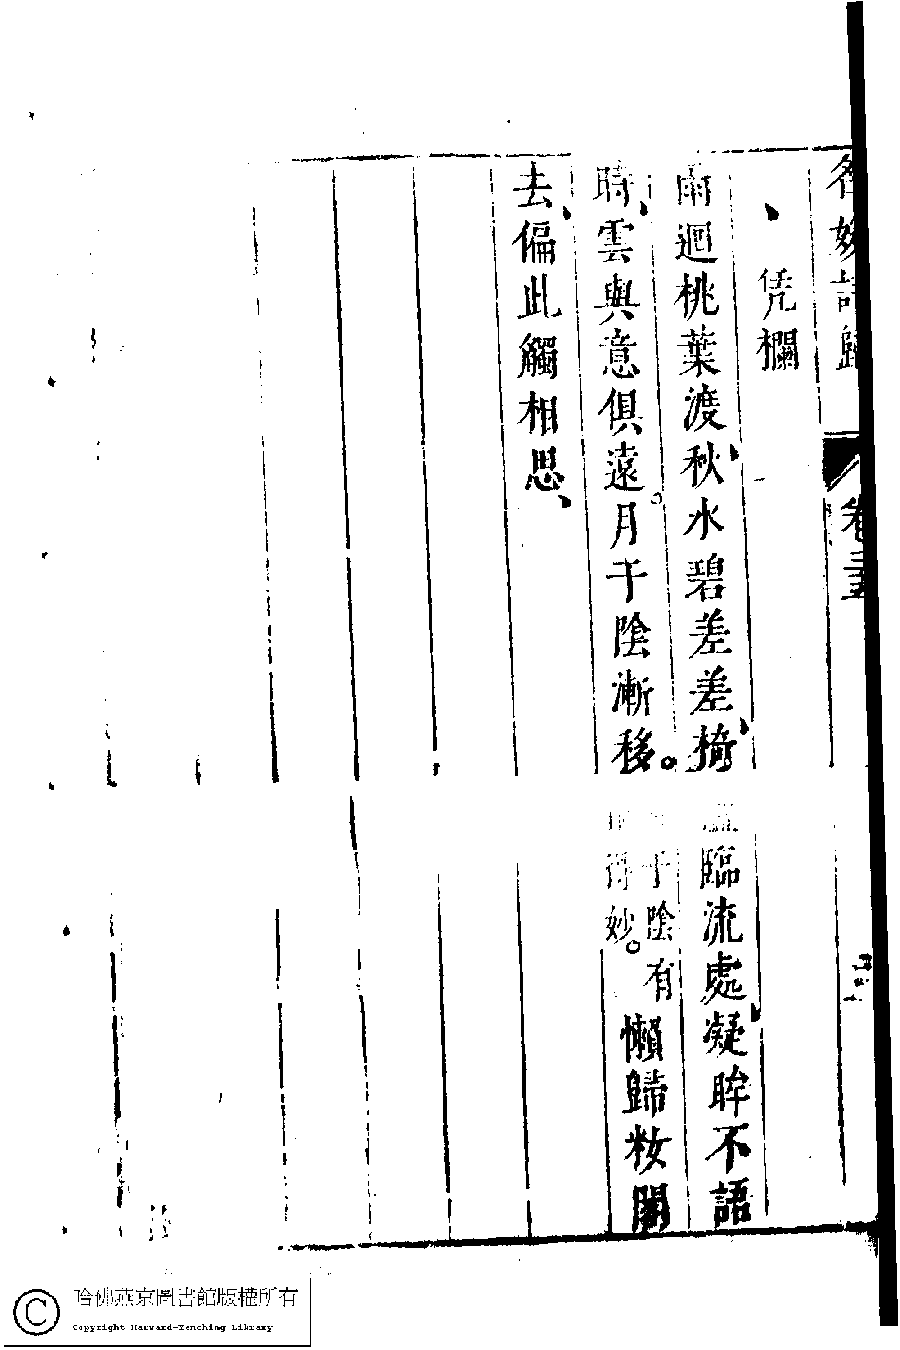 名媛詩歸 卷三十五
凭欄
雨迴桃葉渡秋水碧差差掎 臨流處凝眸不語
時雲與意俱遠月干陰漸移 干陰有 得妙 懶歸妝閣
去偏此觸相思
哈佛燕京圖書館版權所有
Copyright Harvard-Yenching Library